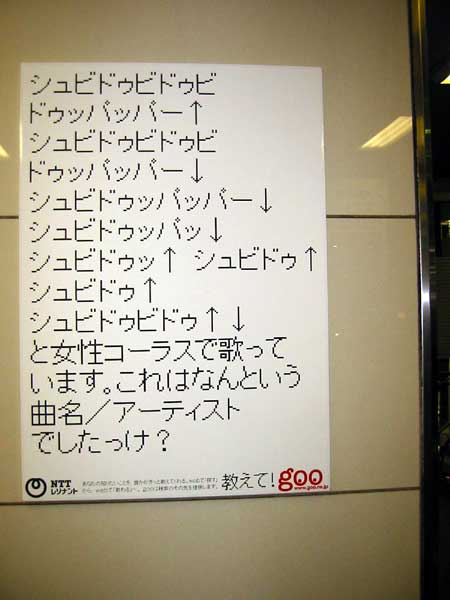 シュビドゥビドゥビ
ドゥッパッパー↑
シュビドゥビドゥビ
ドゥッパッパー↓
シュビドゥッパッパー↓
シュビドゥッパッ↓
シュビドゥッ↑ シュビドゥ↑
シュビドゥ↑
シュビドゥビドゥ↑↓
と女性コーラスで歌って
います。これはなんという
曲名／アーティスト
でしたっけ？
NTT
レゾナント
教えて!goo
www.goo.ne.jp